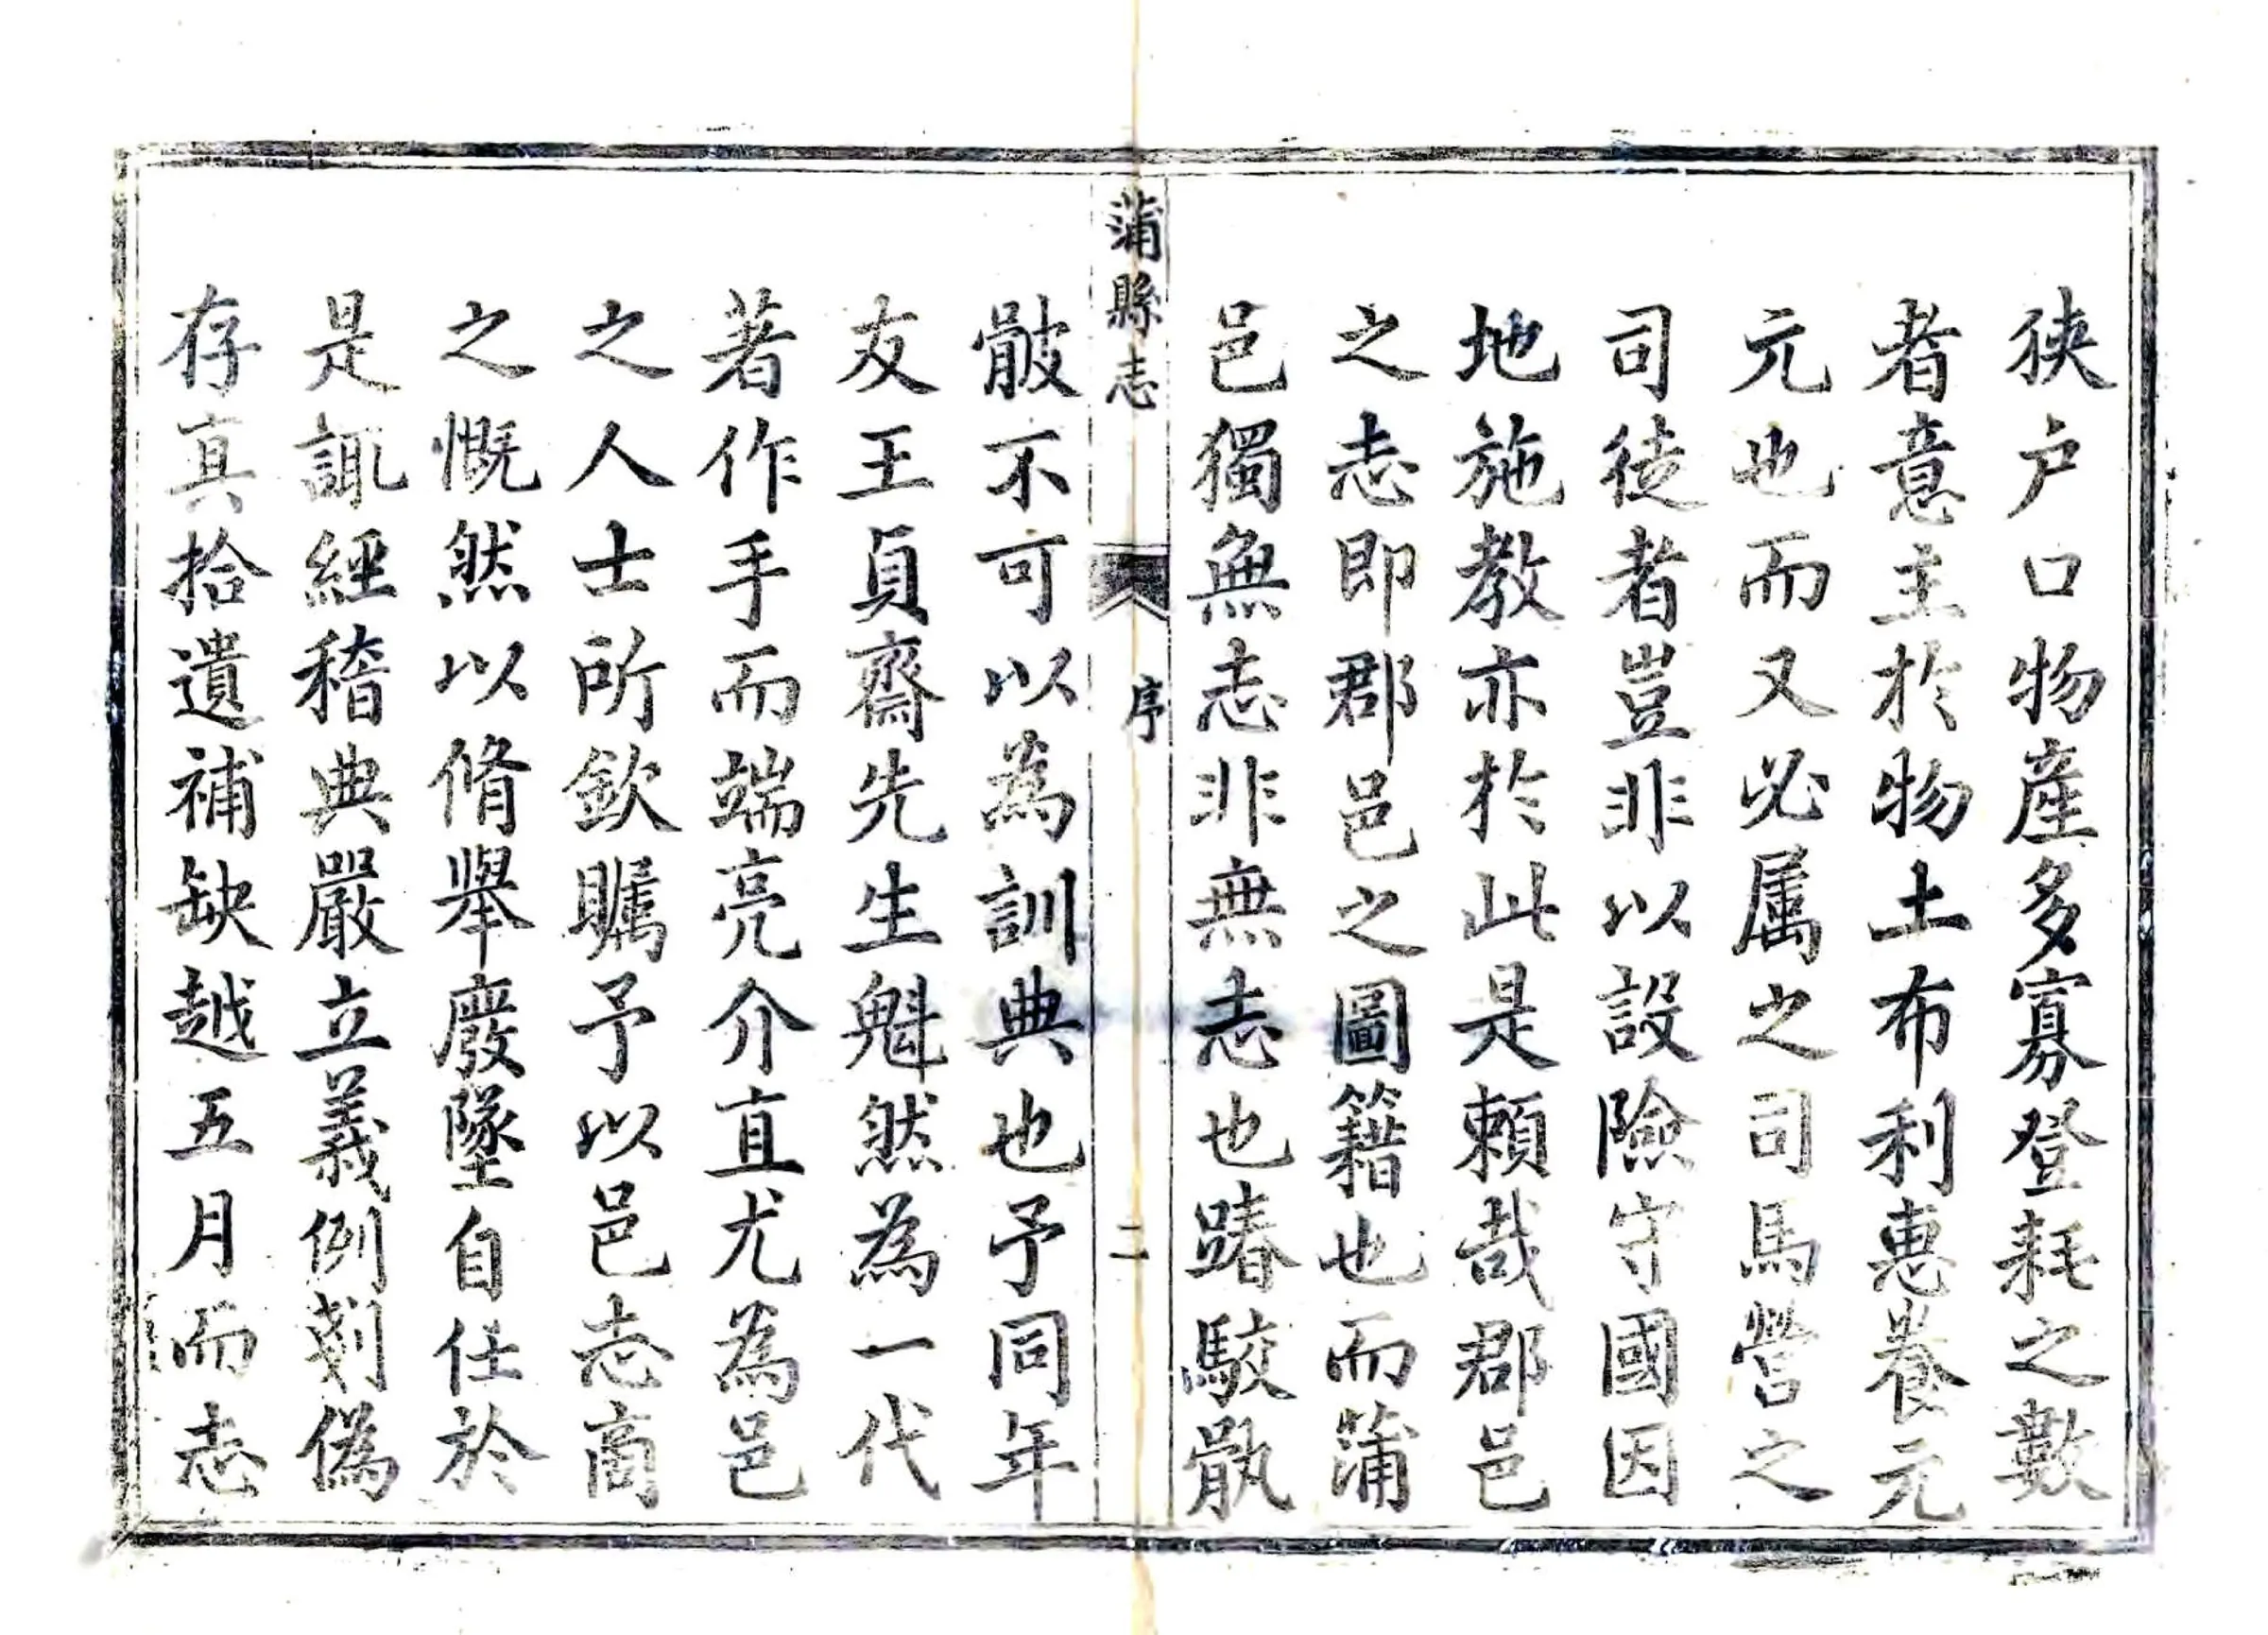 狹户口物產多寡登耗之數
者意主於物土布利惠養元
元也而又必属之司馬營之
司徒者豈非以設險守國因
地施教亦於此是賴哉郡邑
之志即郡邑之圖籍也而蒲
邑獨無志非無志也踳駮骩
蒲縣志
序
二
骳不可以為訓典也予同年
友王貞齋先生魁然為一代
著作手而端亮介直尤為邑
之人士所欽矚予以邑志商
之慨然以脩舉廢墜自任於
是諏經稽典嚴立義例剗偽
存真拾遺補缺越五月而志